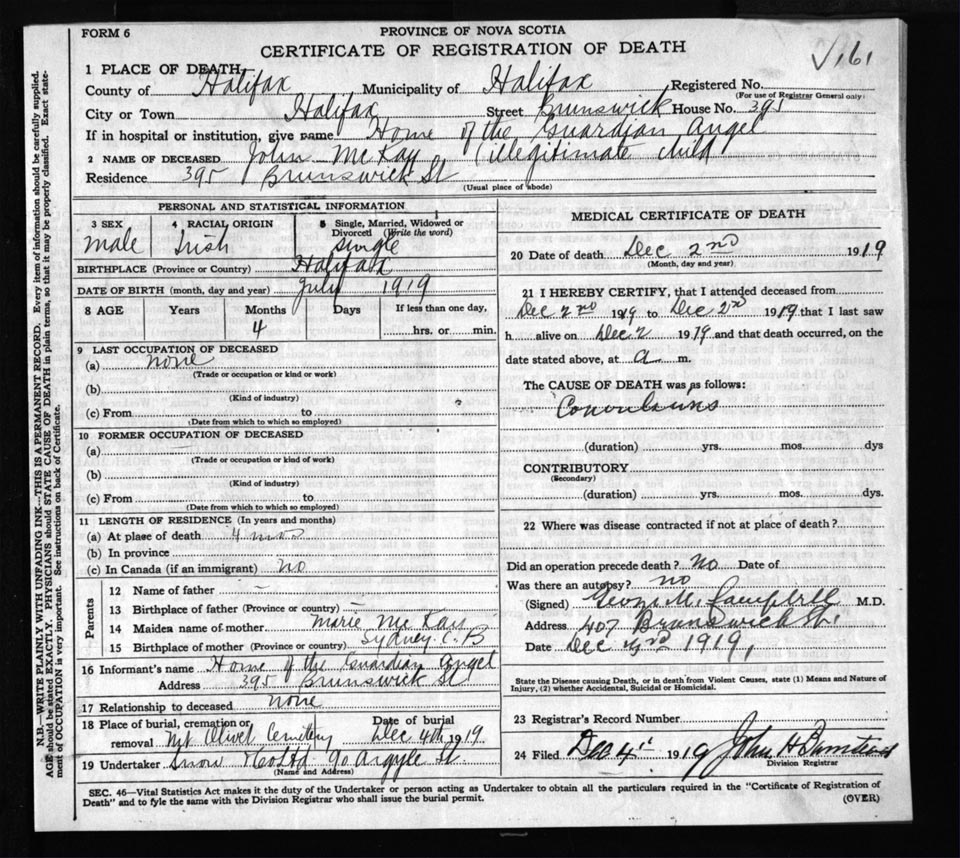 FORM 6
PROVINCE OF NOVA SCOTIA
CERTIFICATE OF REGISTRATION OF DEATH
161
1 PLACE OF DEATH
County of Halifax Municipality of Halifax Registered No.
(For use of Registrar General only)
City or Town Halifax Street Brunswick House No. 395
If in hospital or institution, give name Home of the Guardian Angel
2 NAME OF DECEASED John McKay (illegitimate child
Residence 395 Brunswick St
(Usual place of abode)
PERSONAL AND STATISTICAL INFORMATION
3 SEX 4 RACIAL ORIGIN 5 Single, Married, Widowed or Divorced (Write the word)
Male Irish Single
BIRTHPLACE (Province or Country) Halifax
DATE OF BIRTH (month, day and year) July 1919
8 AGE Years Months Days If less than one day,
4 hrs. or min.
9 LAST OCCUPATION OF DECEASED
(a) None
(Trade or occupation or kind or work)
(b)
(Kind of industry)
(c) From to
(Date from which to which so employed)
10 FORMER OCCUPATION OF DECEASED
(a)
(Trade or occupation or kind of work)
(b)
(Kind of industry)
(c) From to
(Date from which to which so employed)
11 LENGTH OF RESIDENCE (In years and months)
(a) At place of death 4 mos
(b) In province
(c) In Canada (if an immigrant) no
Parents
12 Name of father –
13 Birthplace of father (Province or country) –
14 Maiden name of mother Marie McKay
15 Birthplace of mother (Province or country) Sydney C.B
16 Informant's name Home of the Guardian Angel
Address 395 Brunswick St
17 Relationship to deceased none
18 Place of burial, cremation or removal Mt Olivet Cemetery Date of burial Dec 4th 1919
19 Undertaker Snow & Co Ltd 90 Argyle St
(Name and Address)
MEDICAL CERTIFICATE OF DEATH
20 Date of death Dec 2nd 1919
(Month, day and year)
21 I HEREBY CERTIFY, that I attended deceased from
Dec 2nd 1919 to Dec 2nd 1919 that I last saw
h alive on Dec 2 1919 and that death occurred, on the
date stated above, at a m.
The CAUSE OF DEATH was as follows:
Convulsions
(duration) yrs. mos. dys
CONTRIBUTORY
(Secondary)
(duration) yrs. mos. dys.
22 Where was disease contracted if not at place of death?
Did an operation precede death? No Date of
Was there an autopsy? no
(Signed) George M. Campbell M.D.
Address 407 Brunswick St.
Date Dec 1919,
State the Disease causing Death, or in death from Violent Causes, state (1) Means and Nature of
Injury, (2) whether Accidental, Suicidal or Homicidal.
23 Registrar's Record Number
24 Filed Dec 4th 1919 John H
Division Registrar
SEC. 46—Vital Statistics Act makes it the duty of the Undertaker or person acting as Undertaker to obtain all the particulars required in the "Certificate of Registration of
Death" and to fyle the same with the Division Registrar who shall issue the burial permit.
(OVER)
N.B.—WRITE PLAINLY WITH UNFADING INK—THIS IS A PERMANENT RECORD. Every item of information should be carefully supplied.
AGE should be stated EXACTLY. PHYSICIANS should STATE CAUSE OF DEATH in plain terms, so that it may be properly classified. Exact state-
ment of OCCUPATION is very important. See instructions on back of Certificate.